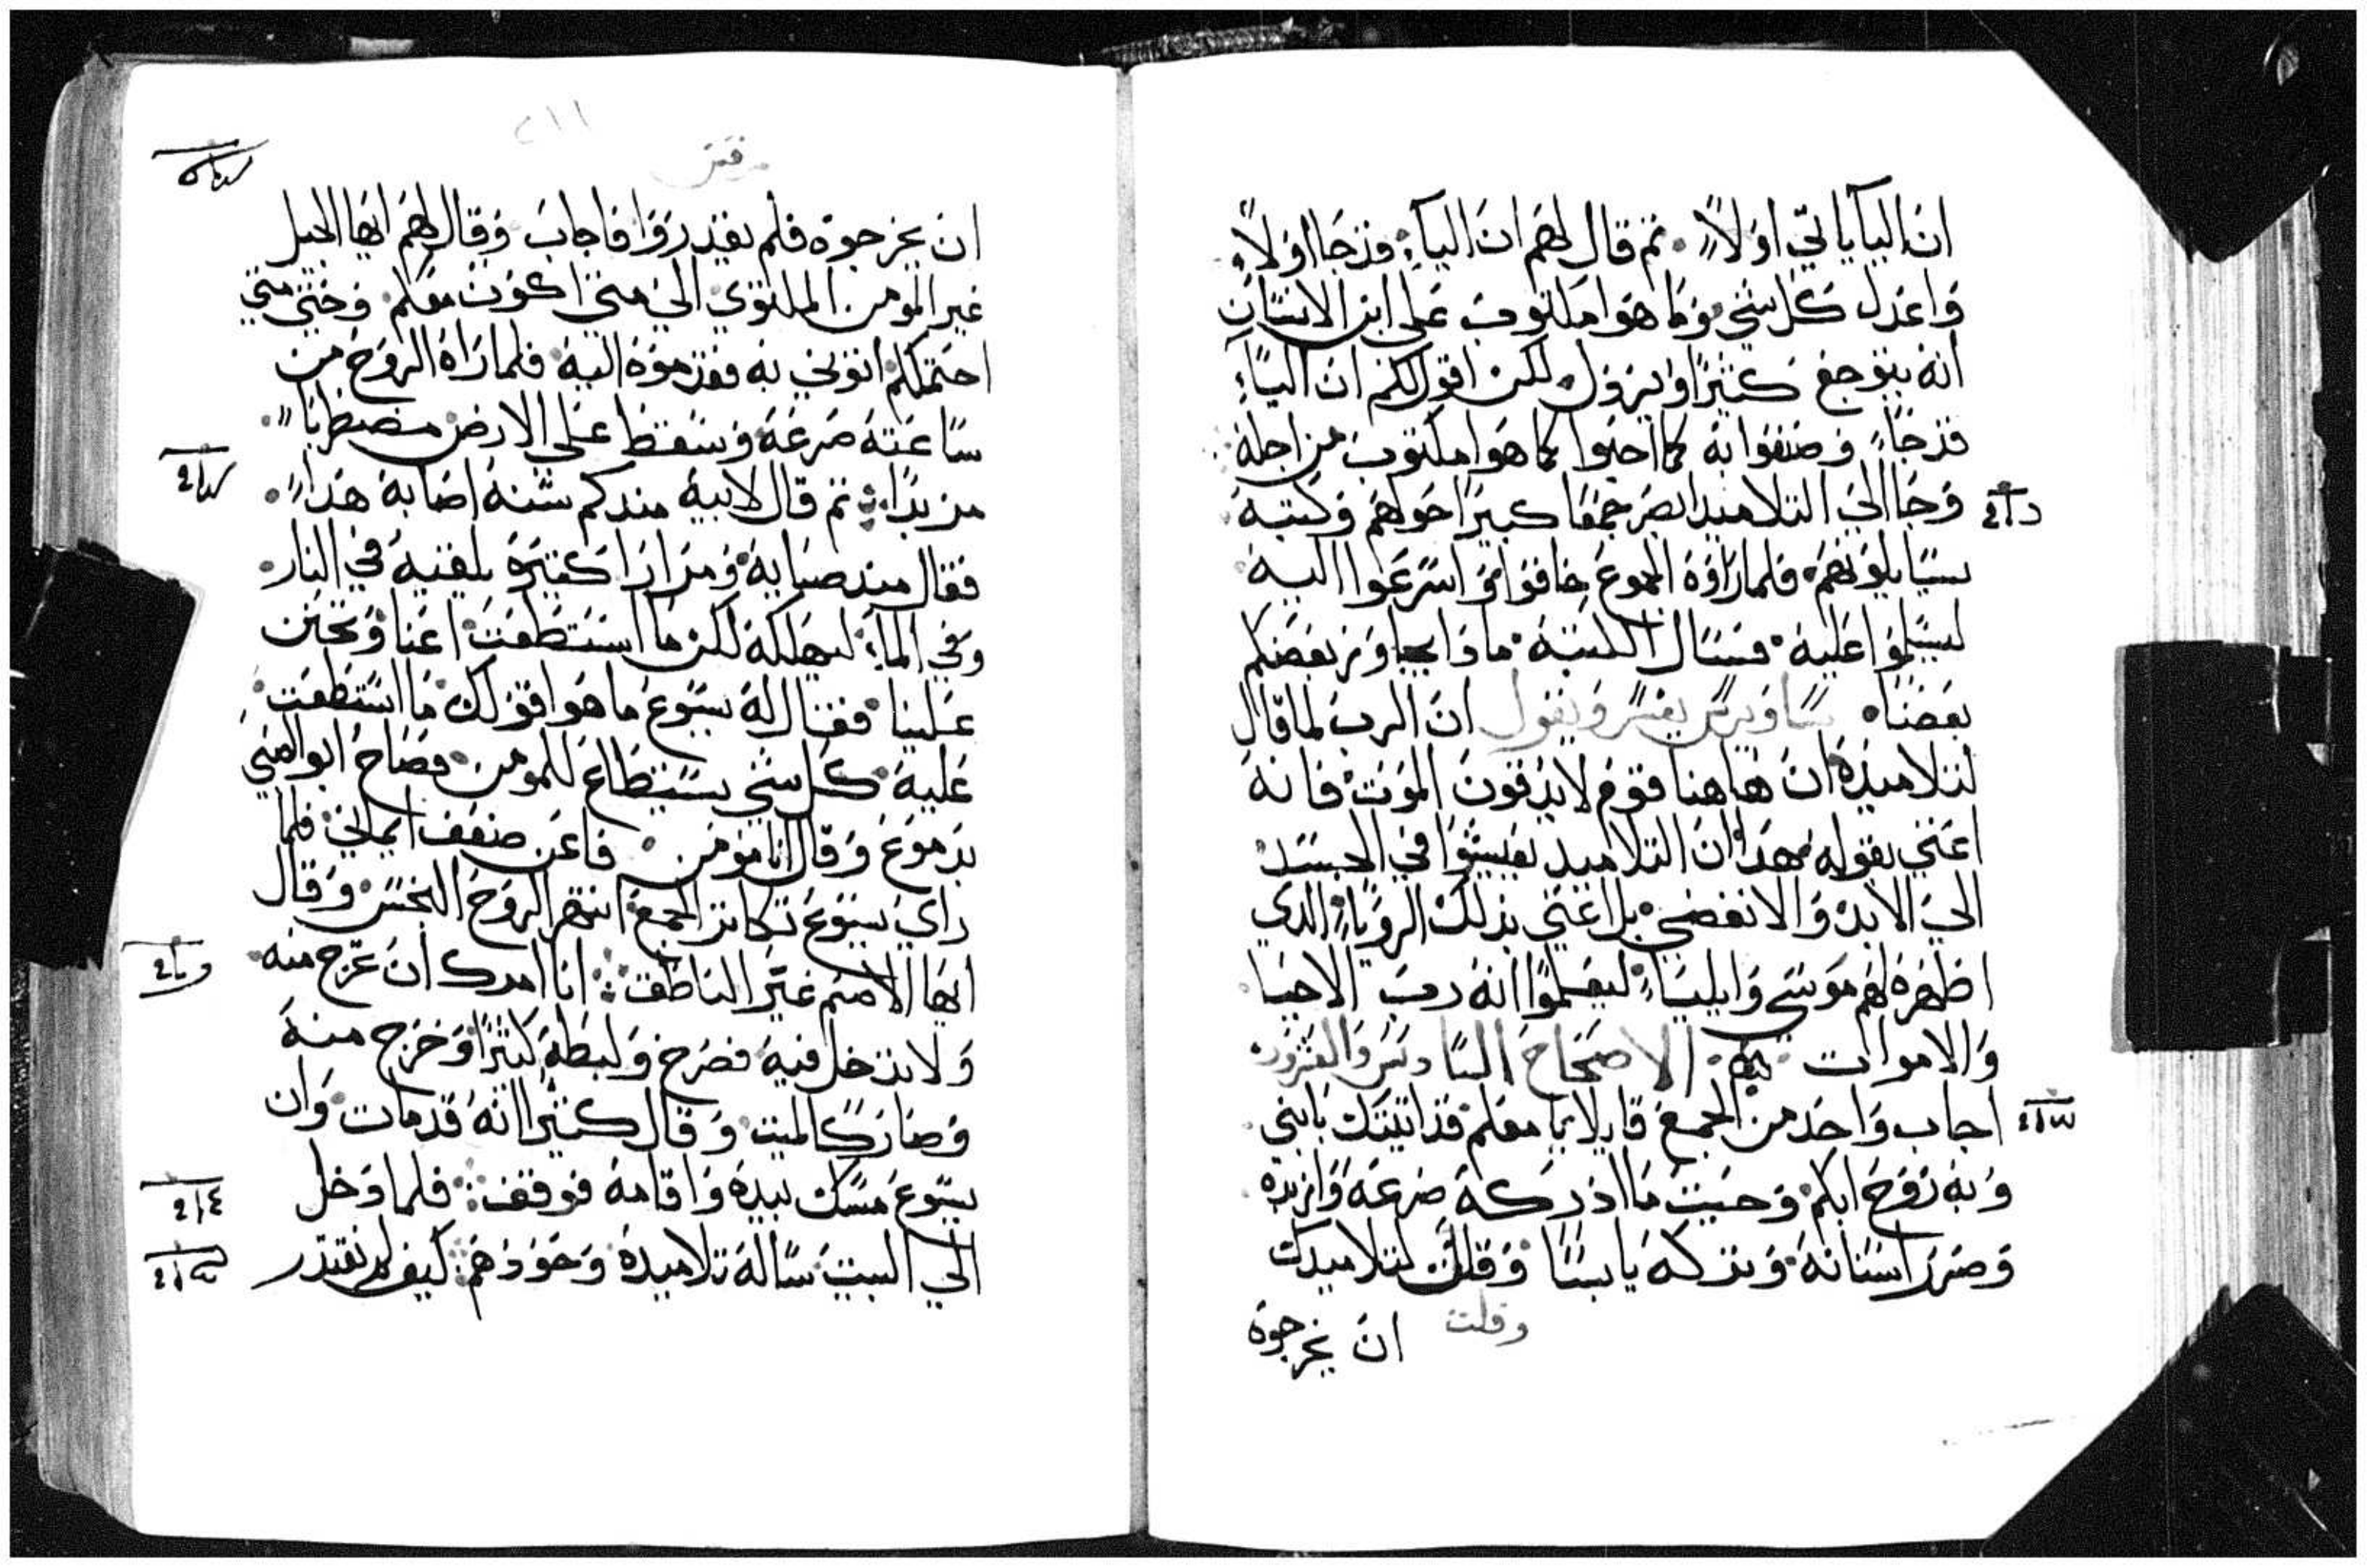 ان اليا ياتي اولاً. ثم قال لهم ان اليآء قد جا اولاً
واعدل كل شي وما هوا مكتوب على ابن الانسان
انه يتوجع كثيرًا ويرذل لكن اقول لكم ان اليآء
قد جاء وصنعوا به كما احبوا كما هوا مكتوب من اجله
وجا الى التلاميد ابصر جمعا كبيرا حولهم وكتبه
يسايلونهم فلما راوه الجموع خافوا واسرعوا اليه
ليسلموا عليه فسال الكتبه ماذا يجاوز بعضكم
بعضنا ساويرس يفسر ويقول ان الرب لما قال
لتلاميذه ان هاهنا قوم لا يذقون الموت فانه
اعنى بقوله هدا ان التلاميد يعيشوا في الجسد
الى الابد والانقضي بل اعني بذلك الرويا الدي
اظهره لهم موسى وايلياء ليعلموا انه رب الاحيا
والاموات الاصحاح السادس والعشرون
اجاب واحد من الجمع قايلا يا معلم قد اتيتك بابني
وبه روح ابكم وحيت ما ادركه صرعه وازبده
وضرر اسنانه وتركه يابسا وقلت لتلاميدك
وقلت ان يخرجوه
مرقس
٢١١
ان يخرجوه فلم يقدروا فاجاب وقال لهم ايها الجيل
غير المومن الملتوي الى متى اكون معكم وحتى متى
احتملكم اتوني به فقدموه اليه فلما راه الروح من
ساعته صرعه وسقط على الارض مضطربا
مزبدًا ثم قال لابيه مندكم سنه اصابه هدا
فقال مند صبايه ومرارا كثيره يلقيه في النار
وفي الماء ليهلكه لكن ما استطعت اعنا وتحنن
علينا فقال له يسوع ما هوا قولك ما استطعت
عليه كل شي يستطاع للمومن فصاح ابو الصبي
بدموع وقال انا مومن فاعن ضعف ايماني فلما
راي يسوع تكاتر الجمع انتهر الروح النجس وقال
ايها الاصم غير الناطق انا امرك ان تخرج منه
ولا تدخل فيه فصرخ ولبطه كثيرًا وخرج منه
وصار كالميت وقال كثيرا انه قد مات وان
يسوع مسك بيده واقامه فوقف فلما دخل
الي البيت ساله تلاميده وحودهم كيف لم نقتدر